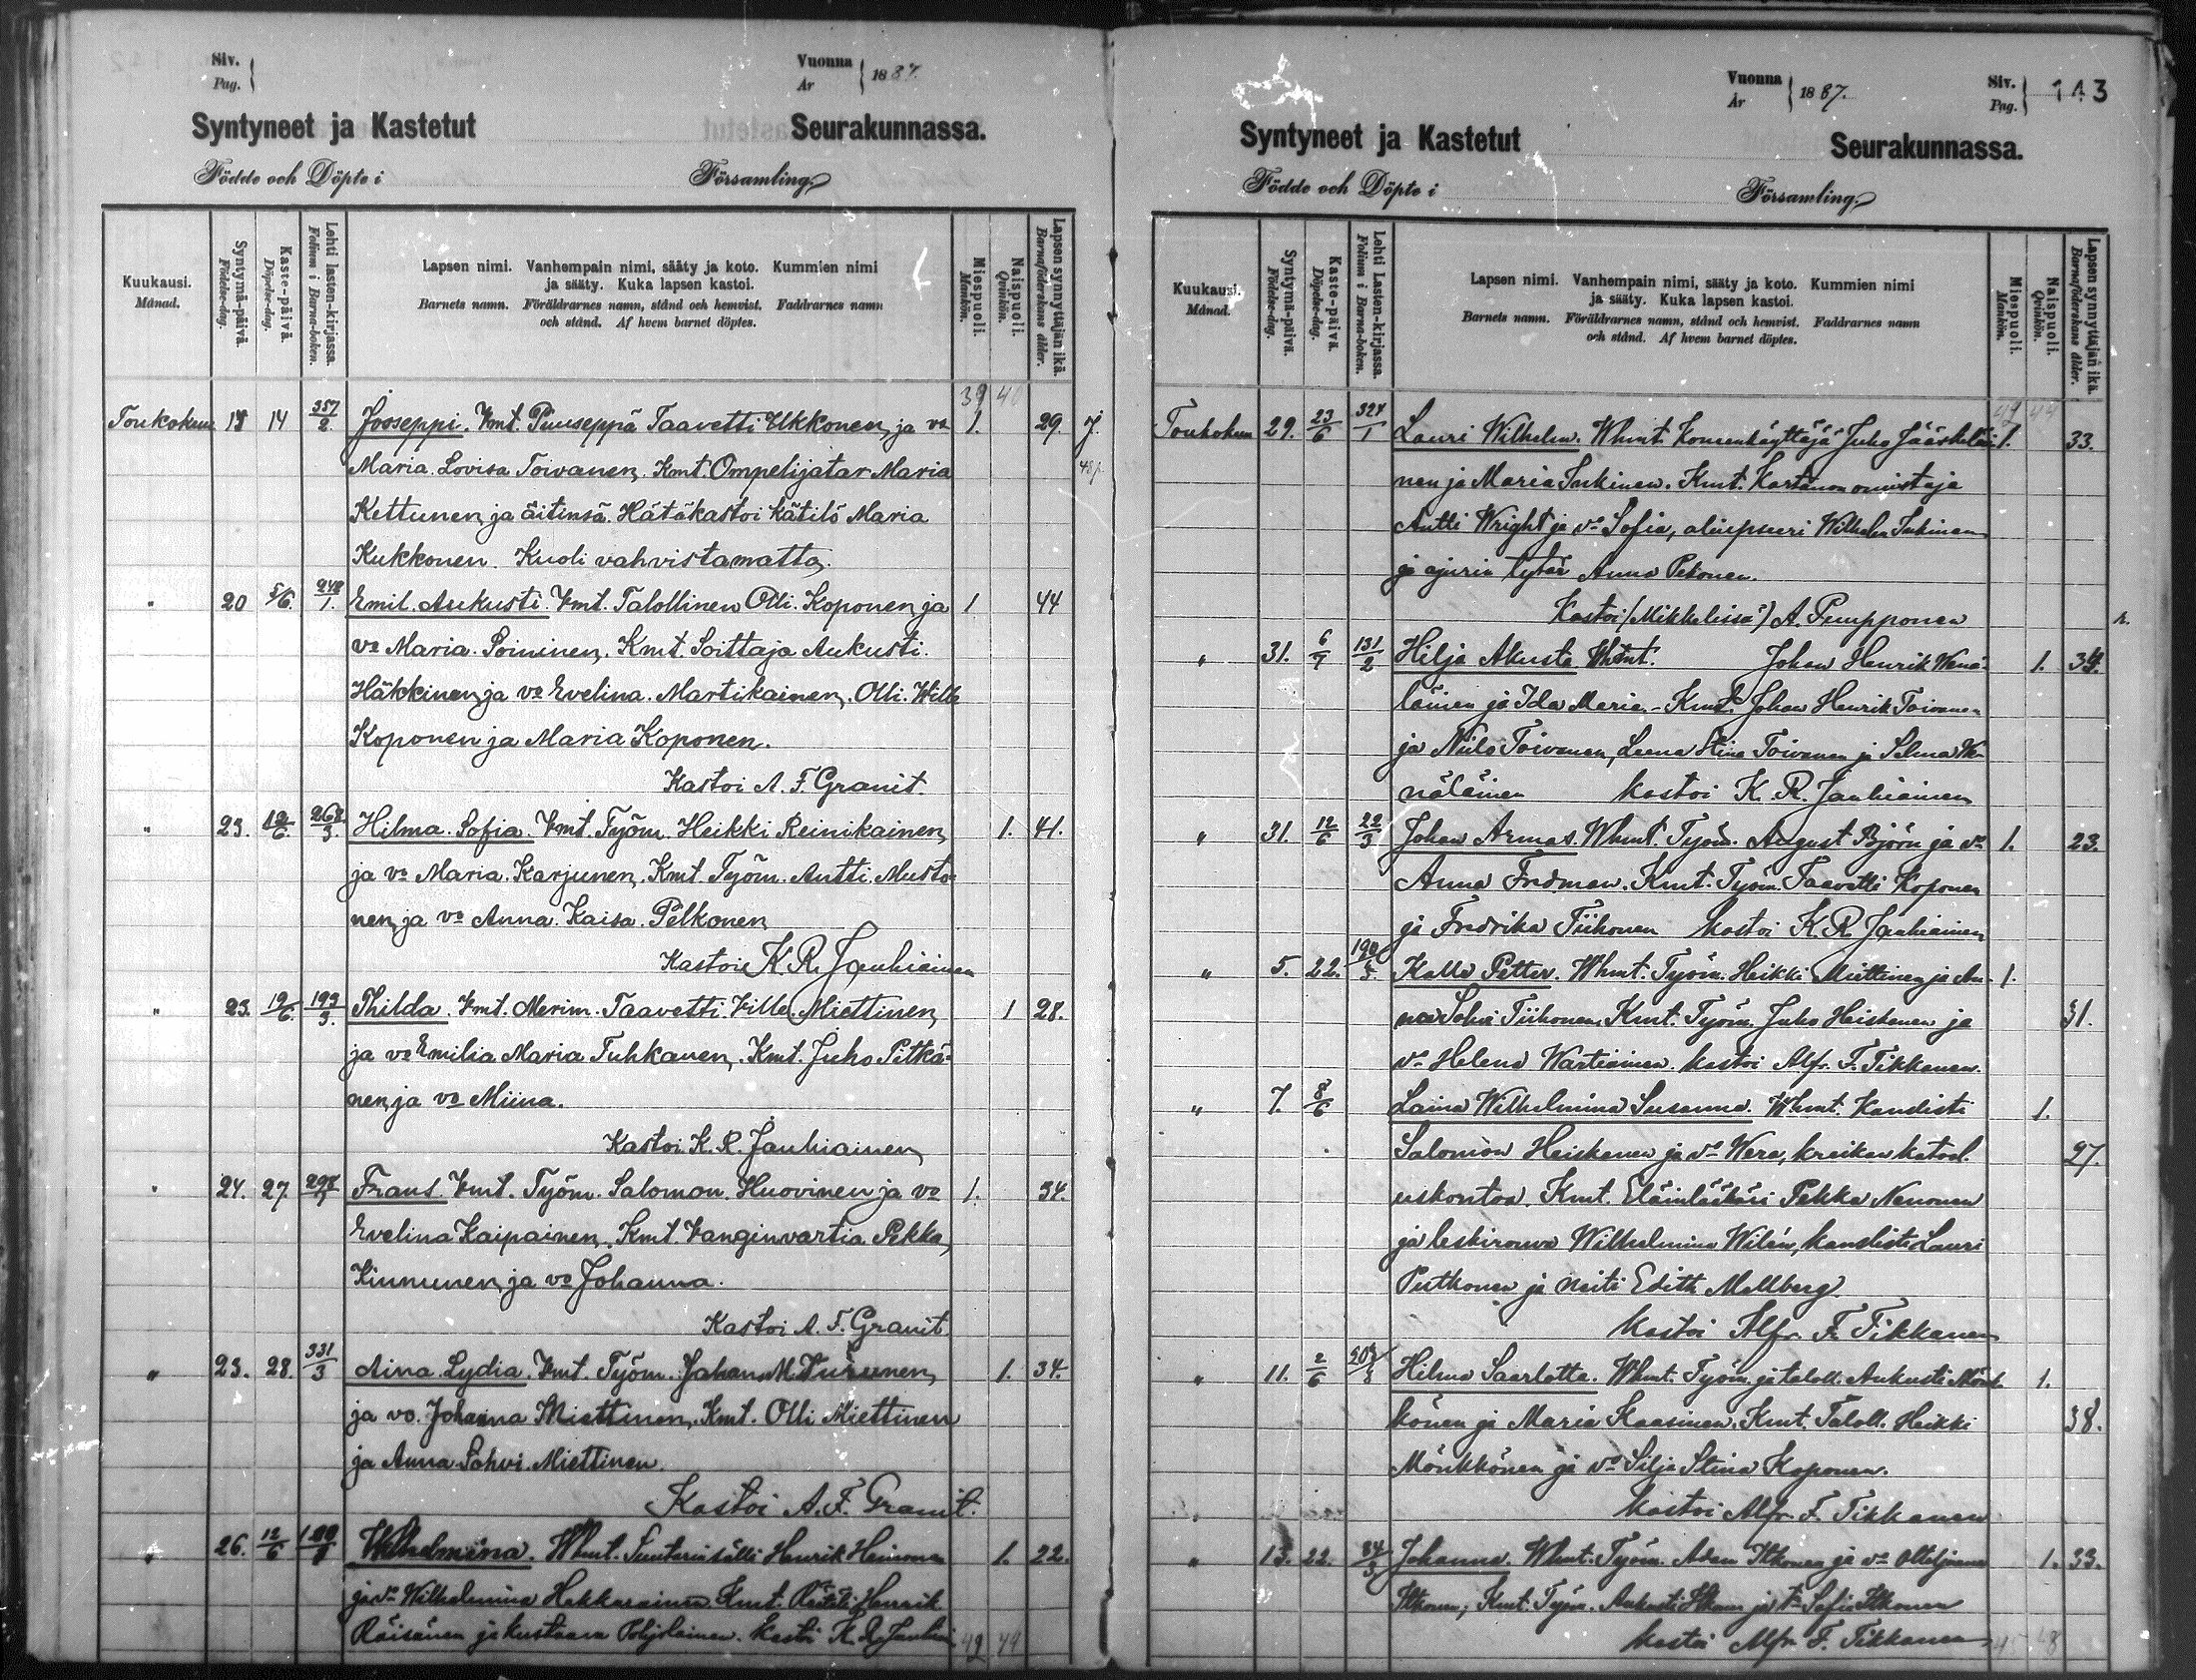 Siv.
Pag.
Vuonna
År
1887.
Syntyneet ja Kastetut Seurakunnassa.
Födde och Döpte i Församling.
Kuukausi.
Månad.
Syntymä-päivä.
Födelse-dag.
Kaste-päivä.
Döpelse-dag.
Lehti lasten-kirjassa.
Folium i Barna-boken.
Lapsen nimi. Vanhempain nimi, sääty ja koto. Kummien nimi
ja sääty. Kuka lapsen kastoi.
Barnets namn. Föräldrarnes namn, stånd och hemvist. Faddrarnes namn
och stånd. Af hvem barnet döptes.
Miespuoli.
Mankön.
Naispuoli.
Qvinkön.
Lapsen synnyttäjän ikä.
Barnaföderskans ålder.
39 40
Toukokuu 14 357/2 Jooseppi. Vmt. Puuseppä Taavetti Ukkonen, ja vo 1. 29.
Maria Lovisa Toivanen, Kmt. Ompelijatar Maria
Kettunen, ja äitinsä. Hätäkastoi kätilö Maria
Kukkonen. Kuoli vahvistamatta.
" 20 5/6. 248/1. Emil. Aukusti. Vmt. Talollinen Olli. Koponen, ja 1 44
vo Maria. Poininen. Kmt. Soittaja Aukusti.
Häkkinen, ja vo Evelina. Martikainen, Olli. Wille
Koponen ja Maria Koponen.
Kastoi A. F. Granit.
" 23. 12/6. 268/3. Hilma. Sofia. Vmt. Työm. Heikki Reinikainen, 1. 41.
ja vo Maria. Karjunen, Kmt. Työm. Antti. Musto-
nen, ja vo Anna. Kaisa. Pelkonen
Kastoi K. R. Jauhiainen
" 23. 12/6. 193/3. Thilda. Vmt. Merim. Taavetti Ville. Miettinen, 1 28.
ja vo Emilia Maria Tuhkanen, Kmt. Juho Pitkä-
nen, ja vo Miina.
Kastoi. K. R. Jauhiainen
" 24. 27. Frans. Vmt. Työm. Salomon. Huovinen ja vo 1. 34.
Evelina Kaipainen, Kmt. Vanginvartia. Pekka,
Kinnunen, ja vo Johanna.
Kastoi A. F. Granit
" 23. 28. 331/3 Aina. Lydia. Vmt. Työm. Johan M. Turunen, 1. 34.
ja vo. Johanna Miettinen, Kmt. Olli Miettinen
ja Anna Sohvi Miettinen.
Kastoi A. F. Granit.
" 26. 12/6 Wilhelmina. Whmt. Suutarinsälli Henrik Heinonen 1. 22.
ja vo Wilhelmina Hakkarainen. Kmt. Räätäli Henrik
Räisänen ja Kustaava Pohjolainen. kastoi K. R. Jauhiai
42 44
Vuonna
År
1887.
Siv.
Pag.
143
Syntyneet ja Kastetut Seurakunnassa.
Födde och Döpte i Församling.
Kuukausi.
Månad.
Syntymä-päivä.
Födelse-dag.
Kaste-päivä.
Döpelse-dag.
Lehti Lasten-kirjassa.
Folium i Barna-boken.
Lapsen nimi. Vanhempain nimi, sääty ja koto. Kummien nimi
ja sääty. Kuka lapsen kastoi.
Barnets namn. Föräldrarnes namn, stånd och hemvist. Faddrarnes namn
och stånd. Af hvem barnet döptes.
Miespuoli.
Mankön.
Naispuoli.
Qvinkön.
Lapsen synnyttäjän ikä.
Barnaföderskans ålder.
42 44
Toukokuu 29. 23/6 324/1 Lauri Wilhelm. Whmt. Koneenkäyttäjä Juho Jääskeläi- 1. 33.
nen ja Maria Inkinen. Kmt. Kartanon omistaja
Antti Wright ja vo Sofia, aliupseeri Wilhelm Inkinen
ja ajurin tytär Anna Pekonen.
Kastoi (Mikkelissä) A. Pumpponen
" 31. 6/7 131/2 Hilja Akusta Whmt. Johan Henrik Wenä- 1.
läinen ja Ida Maria. - Kmt. Johan Henrik Toivanen
ja Niilo Toivanen, Leena Stina Toivanen ja Selma We-
näläinen kastoi K. R. Jauhiainen
" 31. 12/6 22/3 Johan Armas. Whmt. Työm. August Björn ja vo 1. 23.
Anna Fredman. Kmt. Työm. Taavetti Koponen
ja Fredrika Tiihonen kastoi K. R. Jauhiainen
" 5. 22. Kalle Petter. Whmt. Työm. Heikki Miettinen ja An- 1.
na Sohvi Tiihonen. Kmt. Työm. Juho Heiskanen ja 31.
vo Helena Wartiainen. kastoi Alfr. F. Tikkanen.
" 7. 8/6 Laina Wilhelmina Susanna. Whmt. Kanslisti 1.
Salomon Heiskanen ja vo Wera, kreikan katool. 27.
uskontoa. Kmt. Eläinlääkäri Pekka Nenonen
ja leskirouva Wilhelmina Wilén, kanslisti Lauri
Putkonen ja neiti Edith Mellberg
kastoi Alfr. F. Tikkanen
" 11. 2/6 Hilma Saarlotta. Whmt. Työm. ja taloll. Aukusti Mönk- 1.
könen ja Maria Kaasinen. Kmt. Taloll. Heikki 38.
Mönkkönen ja vo Silja Stina Koponen.
kastoi Alfr. F. Tikkanen
" 13. 22. 84/3 Johanna. Whmt. Työm. Adam Itkonen ja vo 1. 33.
Itkonen, Kmt. Työm. Aukusti Itkonen ja Sofia Itkonen
kastoi Alfr. F. Tikkanen